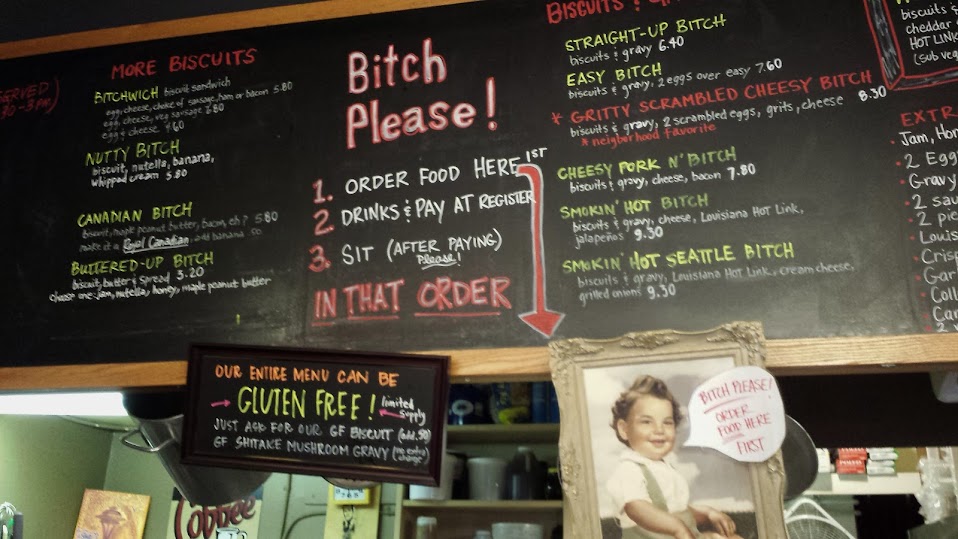 MORE BISCUITS
BITCHWICH biscuit sandwich
egg, cheese, choice of sausage, ham or bacon 5.80
egg, cheese, veg sausage
egg & cheese
NUTTY BITCH
biscuit, nutella, banana,
whipped cream 5.80
CANADIAN BITCH
biscuit, maple peanut butter, bacon, eh? 5.80
make it a Royal Canadian, add banana
BUTTERED-UP BITCH
biscuit, butter & spread 3.20
choose one: jam, nutella, honey, maple peanut butter
Bitch
Please!
1. ORDER FOOD HERE 1ST
2. DRINKS & PAY AT REGISTER
3. SIT (AFTER PAYING)
Please!
IN THAT ORDER
BISCUITS &
STRAIGHT-UP BITCH
biscuits & gravy 6.40
EASY BITCH
biscuits & gravy, 2 eggs over easy 7.60
* GRITTY SCRAMBLED CHEESY BITCH
biscuits & gravy, 2 scrambled eggs, grits, cheese 8.30
* neigborhood favorite
CHEESY PORK N' BITCH
biscuits & gravy, cheese, bacon 7.80
SMOKIN' HOT BITCH
biscuits & gravy, cheese, Louisiana Hot Link,
jalapeños 9.30
SMOKIN' HOT SEATTLE BITCH
biscuits & gravy, Louisiana Hot Link, cream cheese,
grilled onions 9.30
biscuits &
cheddar
HOT LINK
(sub veg
EXTR
Jam, Hon
2 Egg
Gravy
2 sau
2 pie
Louis
Crisp
Gar
Coll
OUR ENTIRE MENU CAN BE
GLUTEN FREE! limited
supply
JUST ASK FOR OUR GF BISCUIT (add .50)
GF SHITAKE MUSHROOM GRAVY (no extra
charge)
BITCH PLEASE!
ORDER
FOOD HERE
FIRST
Coffee